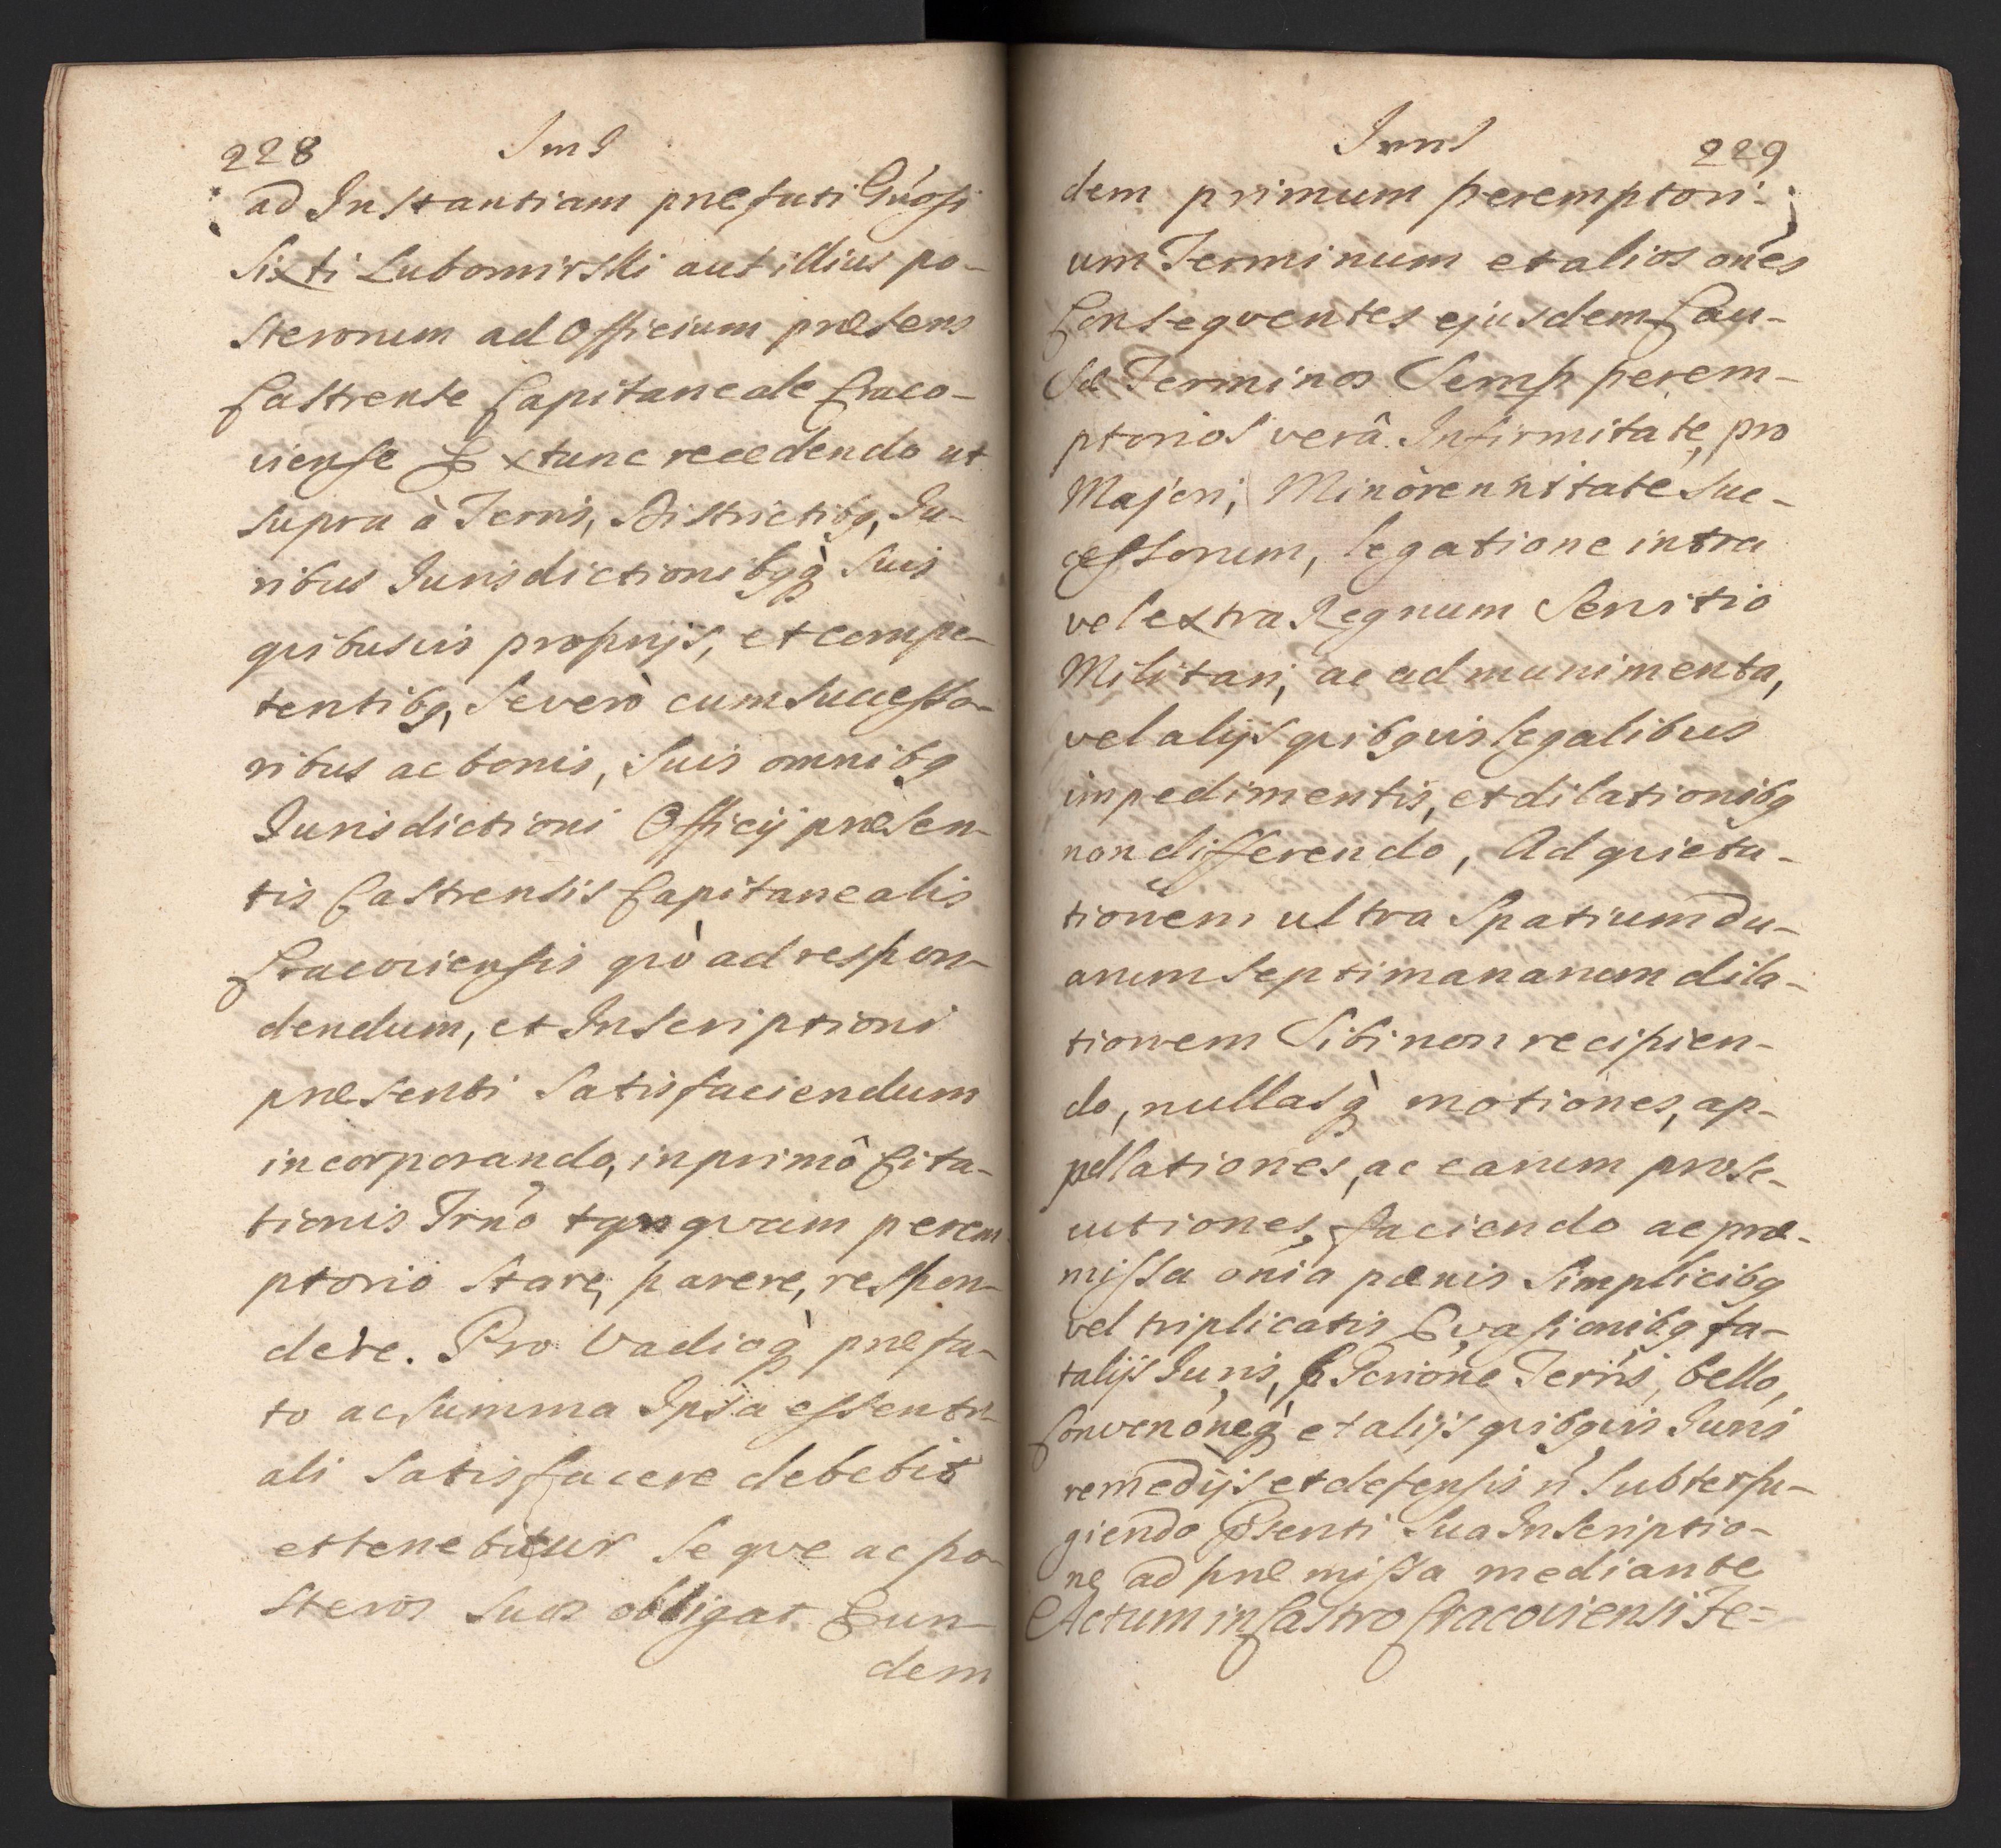 228 Jmś
ad Instantiam præfati Gnosi
Sixti Lubomirski aut illius po-
sterorum ad Officium præsens
Castrense Capitaneale Craco-
viense Extunc recedendo ut
supra à Terris, Districtibq, Iu-
ribus Jurisdictionibqq̀ suis
quibusvis proprijs, et compe-
tentibq, se verò cum successo-
ribus ac bonis, suis omnibq
Jurisdictioni Officij præsen-
tis Castrensis Capitanealis
Cracoviensis quò ad respon-
dendum, et Inscriptioni
præsenti satisfaciendum
incorporando, in primô Cita-
tionis Trnó tanquam perem-
ptorio stare, parere, respon-
dere. Pro Vadioq̀ præfa-
to ac summa Ipsa essenti-
ali satisfacere debebit
et tenebitur seque ac po-
steros suos obligat Eun-
dem
229
dem primum peremptori-
um Terminum et alios onés
Consequentes ejusdem Cau-
sæ Terminos Semp perem-
ptorios verâ Infirmitate, pro
Majori, Minorennitate suc-
cessorum, legatione intra
vel extra Regnum Servitio
Militari, ac ad munimenta,
vel alijs quibqvis legalibus
impedimentis, et dilationibq
non differendo, Ad quieta-
tionem ultra Spatium du-
arum septimanarum dila-
tionem Sibi non recipien-
do, nullasq̀ motiones, ap-
pellationes, ac earum prose-
cutiones, faciendo ac præ-
missa onía pænis simplicibq
vel triplicatis Evasionibq fa-
talijs Juris, Terrís, bello,
Convenóneq̀ et alijs quibqvis Juris
remedijs et defensis ń subterfu-
giendo Psenti sua Inscriptio-
ne ad præmissa mediante
Actum in Castro Cracoviensi Fe-